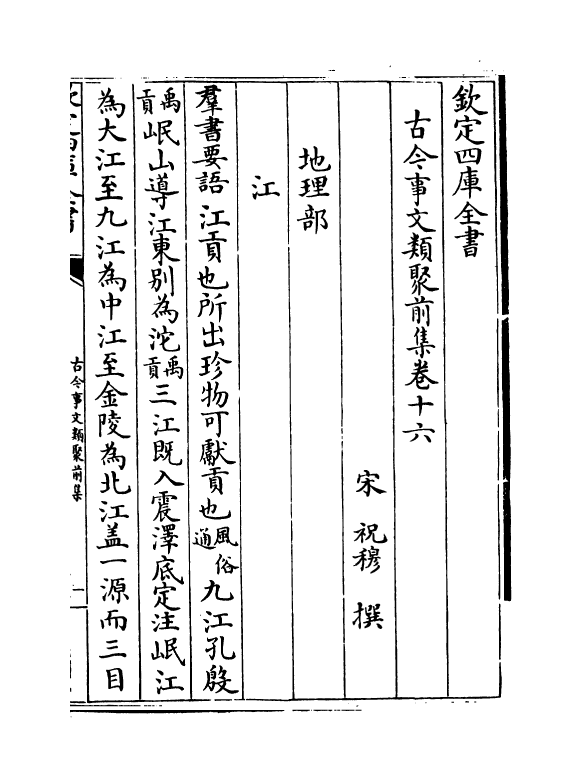 欽定四庫全書
古今事文類聚前集卷十六
宋 祝穆 撰
地理部
江
羣書要語 江貢也所出珍物可獻貢也風俗通九江孔殷
禹貢岷山導江東別為沱禹貢三江既入震澤底定注岷江
為大江至九江為中江至金陵為北江盖一源而三目
古今事文類聚前集